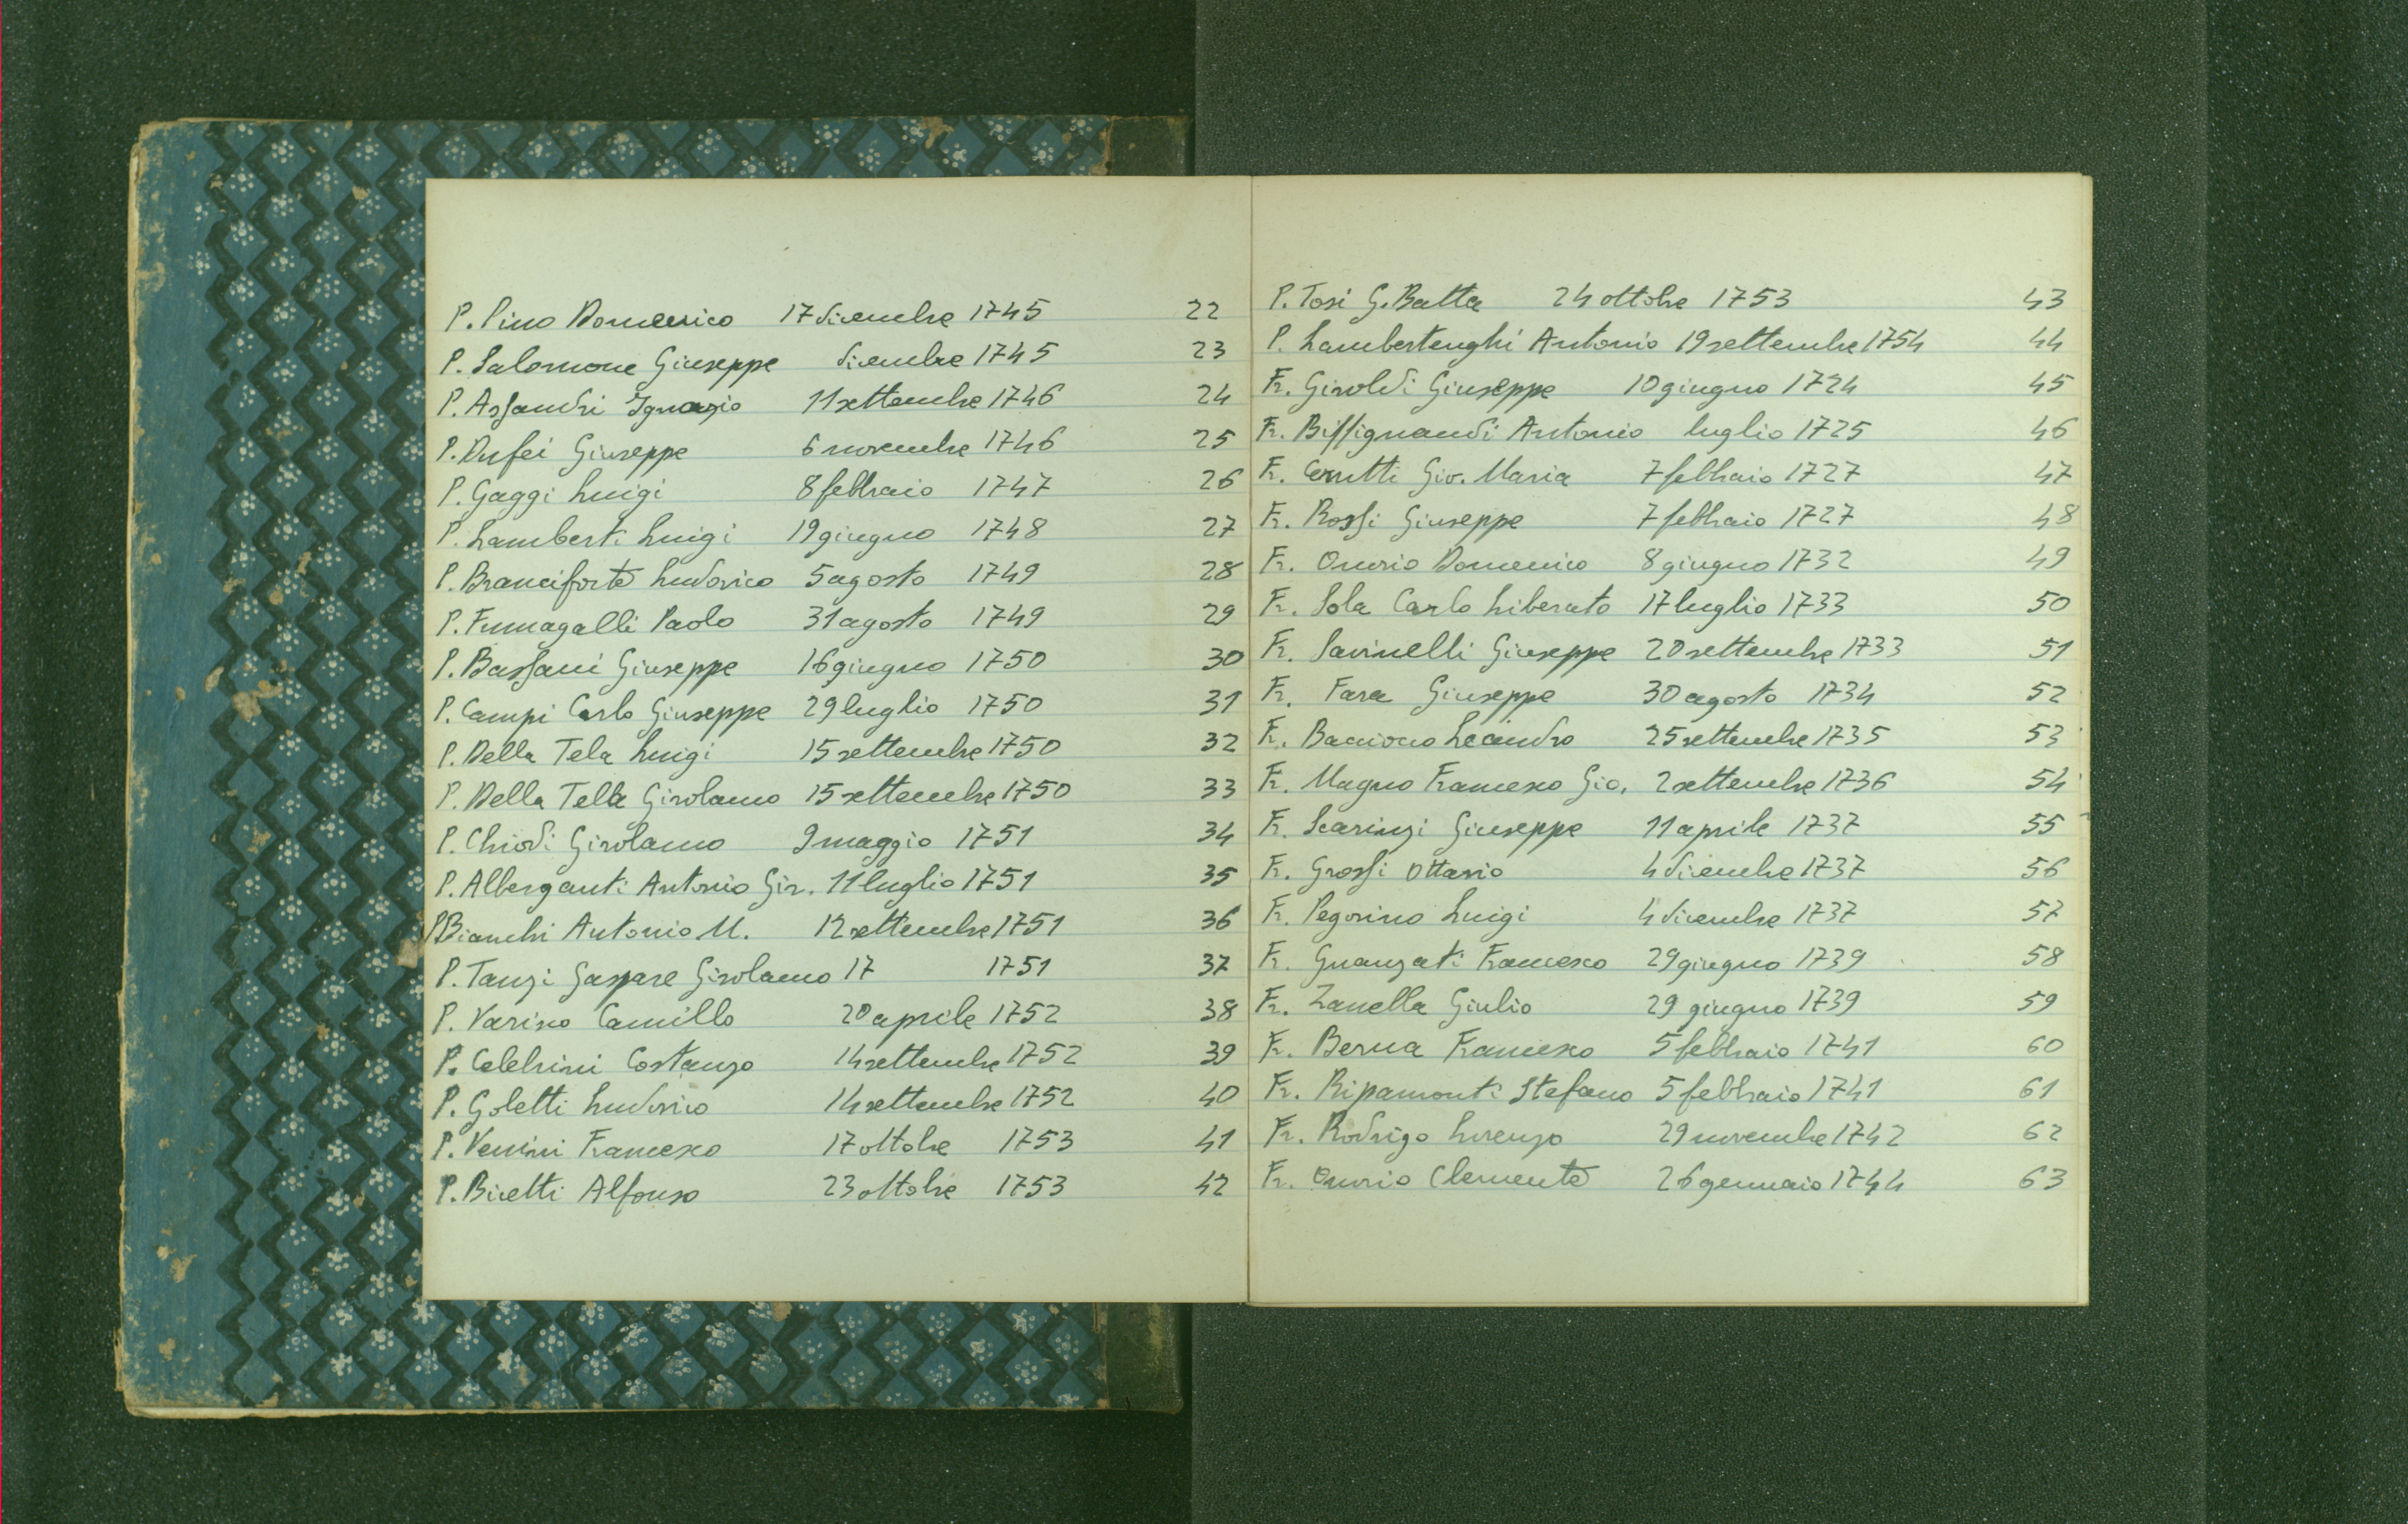 P. Pino Domenico 17 dicembre 1745 22
P. Salomone Giuseppe dicembre 1745 23
P. Assandri Ignazio 11 settembre 1746 24
P. Dufei Giuseppe 6 novembre 1746 25
P. Gaggi Luigi 8 febbraio 1747 26
P. Lamberti Luigi 19 giugno 1748 27
P. Branciforte Ludovico 5 agosto 1749 28
P. Fumagalli Paolo 31 agosto 1749 29
P. Bassani Giuseppe 16 giugno 1750 30
P. Campi Carlo Giuseppe 29 luglio 1750 31
P. Della Tela Luigi 15 settembre 1750 32
P. Della Tella Girolamo 15 settembre 1750 33
P. Chiodi Girolamo 9 maggio 1751 34
P. Alberganti Antonio Gir. 11 luglio 1751 35
P. Bianchi Antonio M. 12 settembre 1751 36
P. Tanzi Gaspare Girolamo 17 1751 37
P. Varisco Camillo 20 aprile 1752 38
P. Celebrini Costanzo 14 settembre 1752 39
P. Goletti Ludovico 14 settembre 1752 40
P. Venini Francesco 17 ottobre 1753 41
P. Bicetti Alfonso 23 ottobre 1753 42
P. Tosi G. Batta 24 ottobre 1753 43
P. Lambertenghi Antonio 19 settembre 1754 44
Fr. Giroldi Giuseppe 10 giugno 1724 45
Fr. Biffignandi Antonio luglio 1725 46
Fr. Cerutti Gio. Maria 7 febbraio 1727 47
Fr. Rossi Giuseppe 7 febbraio 1727 48
Fr. Onorio Domenico 8 giugno 1732 49
Fr. Sola Carlo Liberato 17 luglio 1733 50
Fr. Savinelli Giuseppe 20 settembre 1733 51
Fr. Fara Giuseppe 30 agosto 1734 52
Fr. Baciocco Leandro 25 settembre 1735 53
Fr. Magno Francesco Gio. 2 settembre 1736 54
Fr. Scarinzi Giuseppe 11 aprile 1737 55
Fr. Grossi Ottavio 4 dicembre 1737 56
Fr. Pegorino Luigi 4 dicembre 1737 57
Fr. Guanzati Francesco 29 giugno 1739 58
Fr. Zanella Giulio 29 giugno 1739 59
Fr. Berna Francesco 5 febbraio 1741 60
Fr. Ripamonti Stefano 5 febbraio 1741 61
Fr. Rodrigo Lorenzo 29 novembre 1742 62
Fr. Onorio Clemente 26 gennaio 1744 63